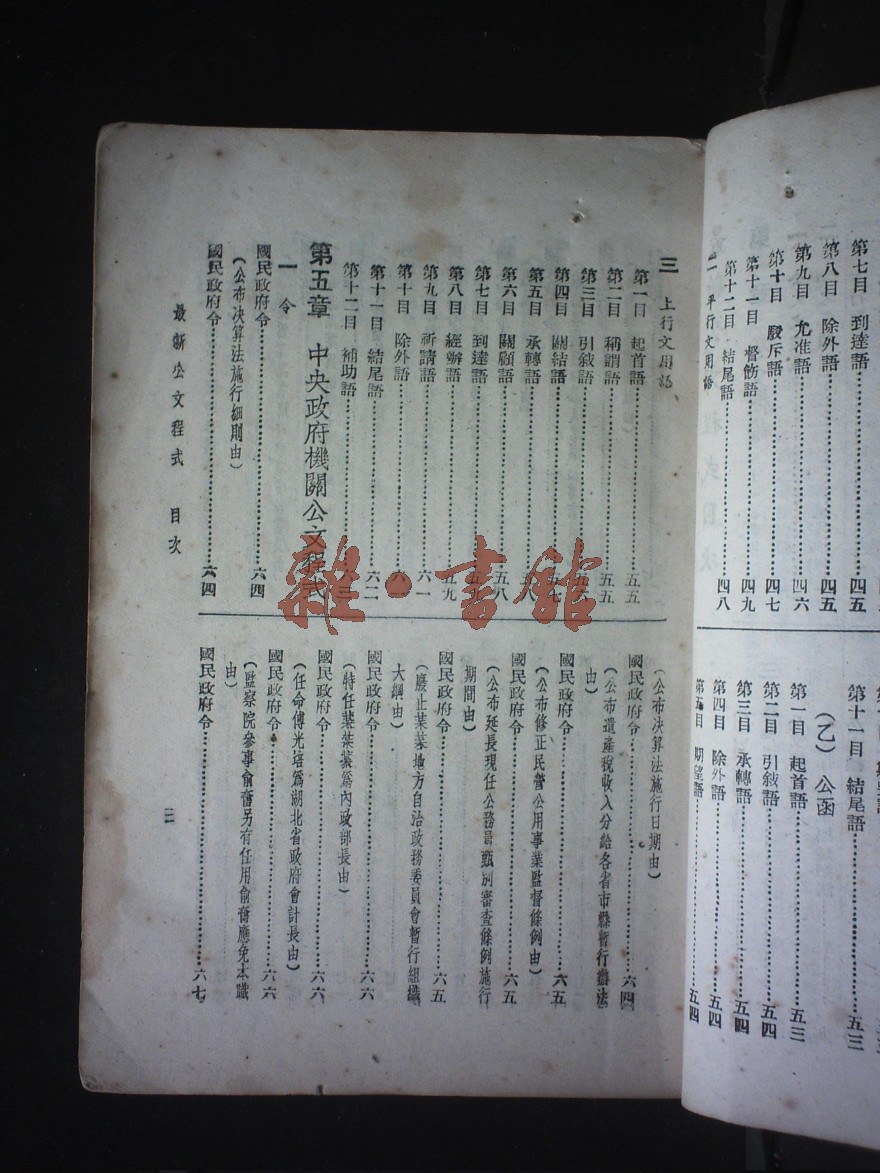 第七目 到達語……四五
第八目 除外語……四五
第九目 允准語……四六
第十目 駁斥語……四七
第十一目 督飭語……四九
第十二目 結尾語……四八
平行文用語
第十一目 結尾語……五三
(乙) 公函
第一目 起首語……五三
第二目 引敍語……五四
第三目 承轉語……五四
第四目 除外語……五四
第五目 期望語……五四
三 上行文用語
第一目 起首語……五五
第二目 稱謂語……五五
第三目 引敍語……五六
第四目 關結語……五七
第五目 承轉語……五八
第六目 關顧語……五八
第七目 到達語……五九
第八目 經辦語……五九
第九目 祈請語……六一
第十目 除外語……六一
第十一目 結尾語……六二
第十二目 補助語……六三
第五章 中央政府機關公文程式
一 令
國民政府令……六四
(公布決算法施行細則由)
國民政府令……六四
(公布決算法施行日期由)
國民政府令……六四
(公布遺產稅收入分給各省市縣暫行辦法
由)
國民政府令……六五
(公布修正民營公用事業監督條例由)
國民政府令……六五
(公布延長現任公務員甄別審查條例施行
期間由)
國民政府令……六五
(廢止某某地方自治政務委員會暫行組織
大綱由)
國民政府令……六六
(特任某某某爲內政部長由)
國民政府令……六六
(任命傅光培爲湖北省政府會計長由)
國民政府令……六六
(監察院參事俞奮另有任用俞奮應免本職
由)
國民政府令……六七
最新公文程式 目次
三
雜·書館